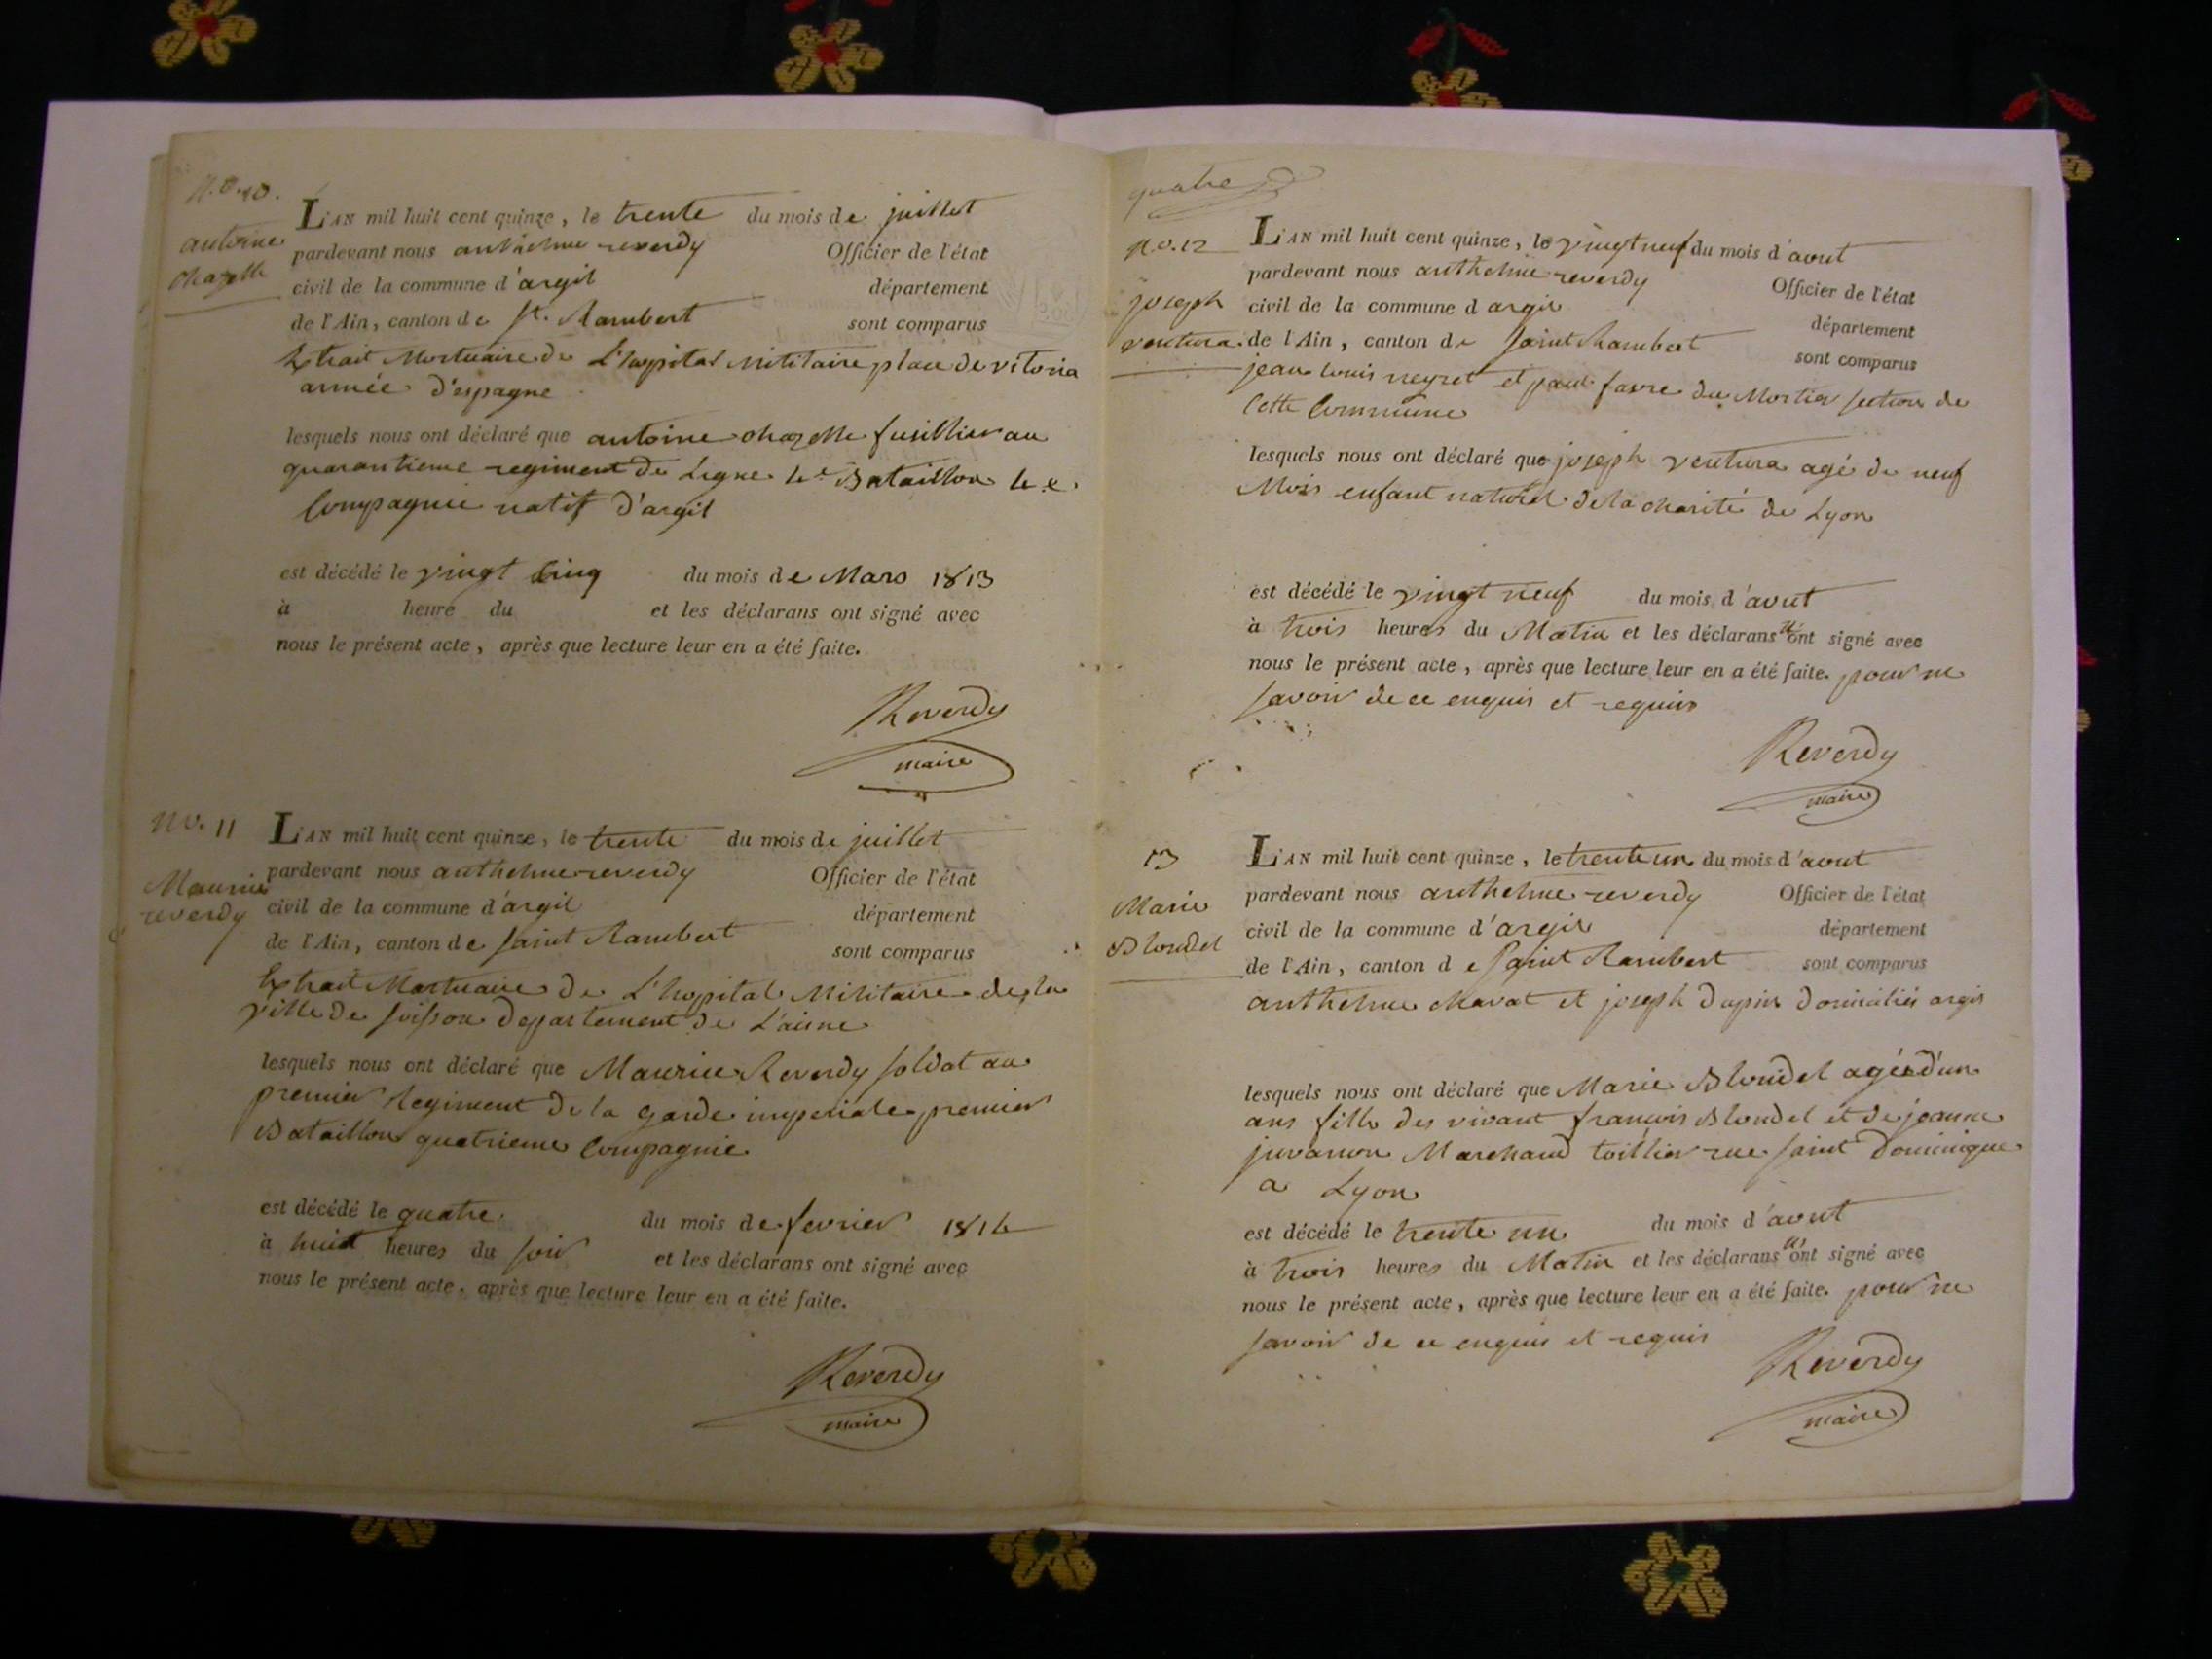 N.o. 10.
antoine
chazelle
L'AN mil huit cent quinze, le trente du mois de juillet
pardevant nous anthelme reverdy Officier de l'état
civil de la commune d'argil département
de l'Ain, canton de St. Rambert sont comparus
Extrait Mortuaire de L'hopital Militaire place de vitoria
armée d'espagne
lesquels nous ont déclaré que antoine chazelle fusillier au
quarantieme regiment de Ligne 4e Bataillon 4e
Compagnie natif d'argil
est décédé le vingt Cinq du mois de Mars 1813
à heure du et les déclarans ont signé avec
nous le présent acte, après que lecture leur en a été faite.
Reverdy
maire
No. 11
Maurice
reverdy
L'AN mil huit cent quinze, le trente du mois de juillet
pardevant nous anthelme reverdy Officier de l'état
civil de la commune d'argil département
de l'Ain, canton de saint Rambert sont comparus
Extrait Mortuaire de L'hopital Militaire de la
ville de soisson departement de L'aisne
lesquels nous ont déclaré que Maurice Reverdy soldat au
premier Regiment de la garde imperiale premier
Bataillon quatrieme Compagnie
est décédé le quatre du mois de fevrier 1814
à huit heures du soir et les déclarans ont signé avec
nous le présent acte, après que lecture leur en a été faite.
Reverdy
maire
quatre
N.o. 12
joseph
ventura
L'AN mil huit cent quinze, le vingt neuf du mois d'aout
pardevant nous anthelme reverdy Officier de l'état
civil de la commune d argis département
de l'Ain, canton de saint Rambert sont comparus
jean louis neyret et paul favre du Mortier section de
Cette Commune
lesquels nous ont déclaré que joseph ventura agé de neuf
Mois enfant naturel de la charité de Lyon
est décédé le vingt neuf du mois d'aout
à trois heures du Matin et les déclarans n'ont signé avec
nous le présent acte, après que lecture leur en a été faite. pour ne
savoir de ce enquis et requis
Reverdy
maire
13
Marie
Blondel
L'AN mil huit cent quinze, le trente un du mois d'aout
pardevant nous anthelme reverdy Officier de l'état
civil de la commune d'argis département
de l'Ain, canton de Saint Rambert sont comparus
anthelme chavat et joseph dupin domiciliés argis
lesquels nous ont déclaré que Marie Blondel agée d'un
ans fille des vivant francois Blondel et de jeanne
juvanon Marchand toillier rue saint dominique
a Lyon
est décédé le trente un du mois d'aout
à trois heures du Matin et les déclarans n'ont signé avec
nous le présent acte, après que lecture leur en a été faite. pour ne
savoir de ce enquis et requis
Reverdy
maire